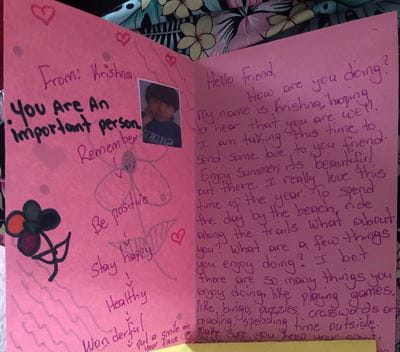 From: Krishna
You Are An
important person.
Remember
Be positive
Stay happy
Healthy
Wonderful
Put a smile on
your face
Hello friend,
How are you doing?
My name is Krishna hoping
to hear that you are well.
I am taking this time, to
send some love to you friend.
Enjoy summer, its beautiful
out there. I really love this
time of the year. To spend
the day by the beach, ride
along the trails. What about
you? What are a few things
you enjoy doing? I bet
there are so many things you
enjoy doing, like playing games,
like, bingo, puzzles, crosswords or
reading, spending time outside.
make sure you keep your